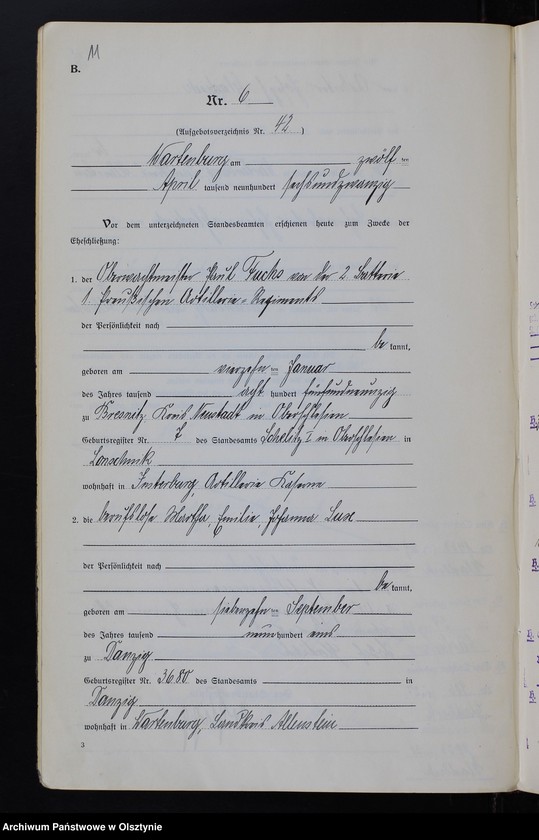 11
B.
Nr. 6
(Aufgebotsverzeichnis Nr. 42)
Wartenburg am zwölf ten
April tausend neunhundert sechsundzwanzig
Vor dem unterzeichneten Standesbeamten erschienen heute zum Zwecke der
Eheschließung:
1. der Oberwachtmeister Paul Fuchs von der 2. Batterie
1. Preußischen Artillerie-Regiments
der Persönlichkeit nach
be kannt,
geboren am vierzehn ten Januar
des Jahres tausend acht hundert fünfundneunzig
zu Kreis Neustadt in Oberschlesien
Geburtsregister Nr. 7 des Standesamts I in Oberschlesien in
wohnhaft in Insterburg, Artillerie Kaserne
2. die berufslose Martha, Emilie, Johanna
der Persönlichkeit nach
be kannt,
geboren am siebzehn ten September
des Jahres tausend neun hundert eins
zu Danzig
Geburtsregister Nr. 3680 des Standesamts in
Danzig
wohnhaft in Wartenburg, Landkreis Allenstein
3
Archiwum Państwowe w Olsztynie